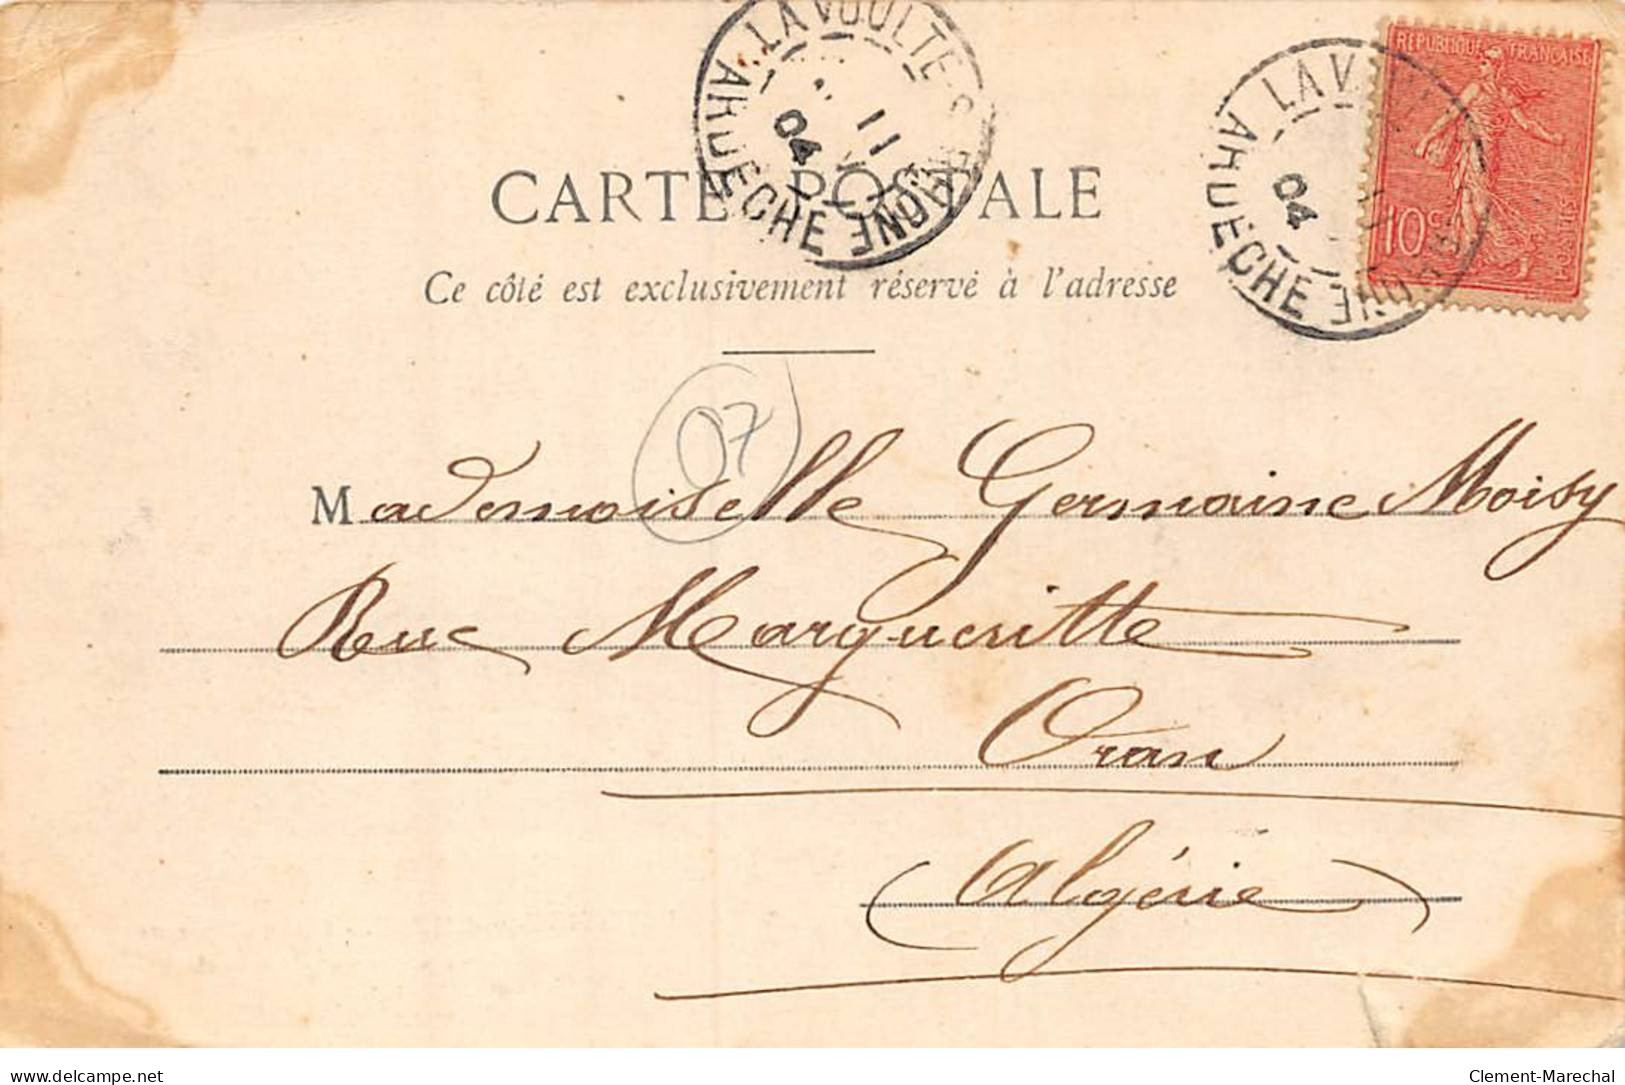 LA VOULTE-S-RHONE
ARDECHE
11
04
LA V
RHONE
ARDECHE
04
REPUBLIQUE FRANÇAISE
10c
POSTES
CARTE POSTALE
Ce côté est exclusivement réservé à l'adresse
07
Mademoiselle Germaine Moisy
Rue Margueritte
Oran
(Algérie)
delcampe.net
Clement-Marechal